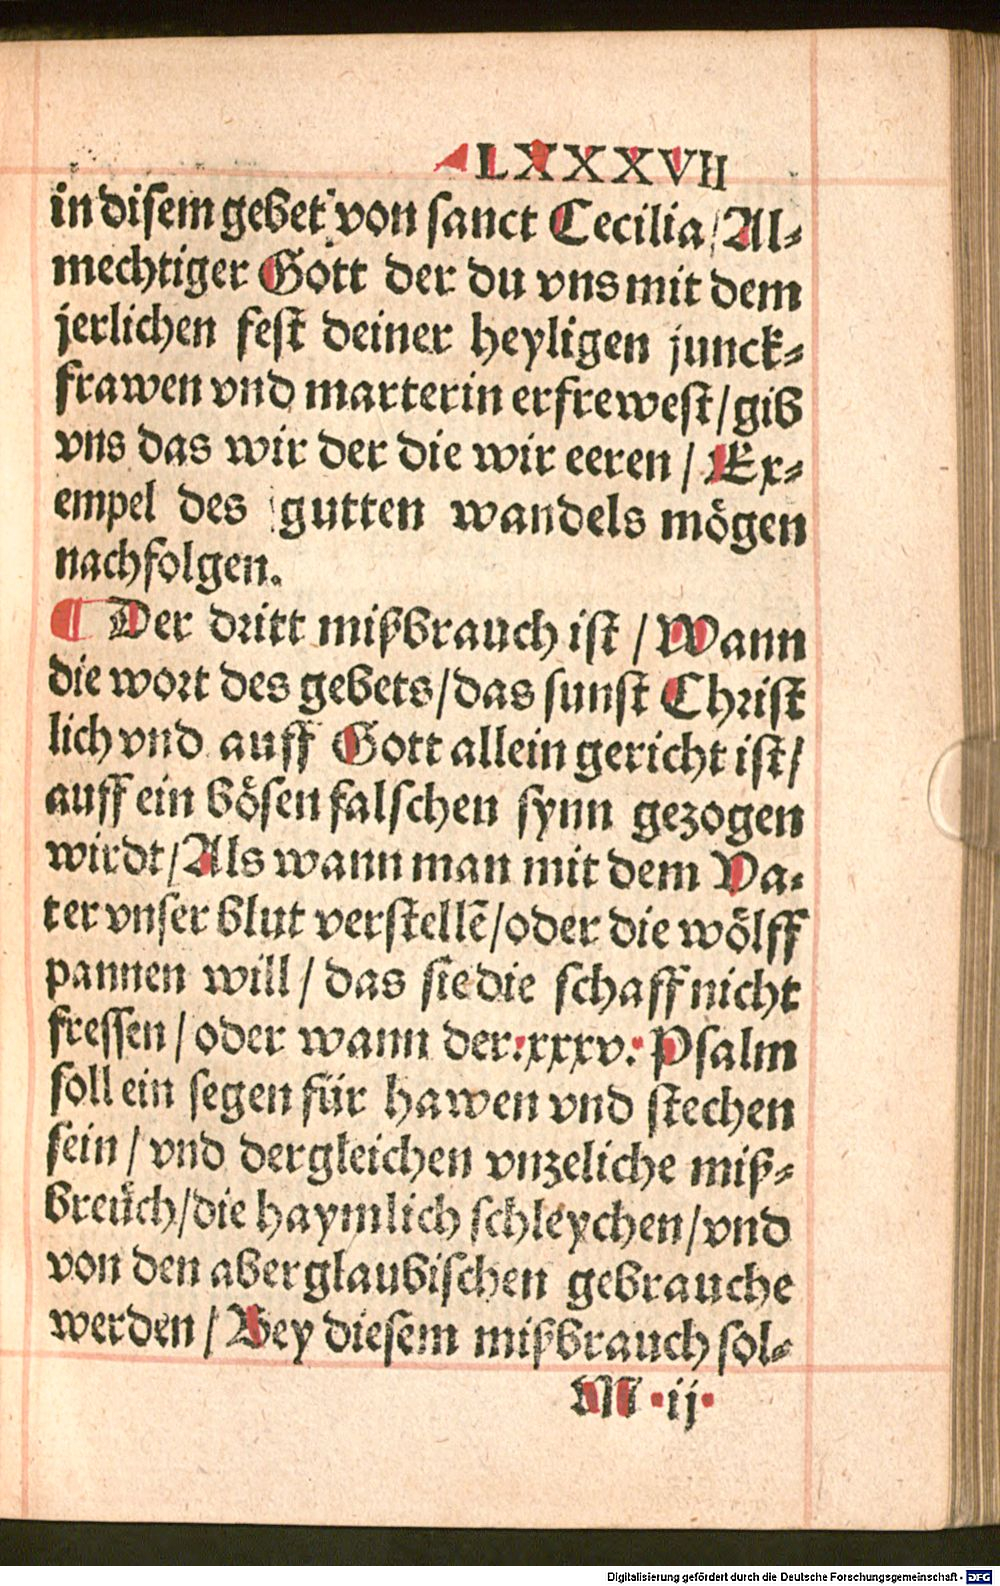 LXXXVII
in disem gebet von sanct Cecilia / Al⸗
mechtiger Gott der du vns mit dem
jerlichen fest deiner heyligen junck⸗
frawen vnd marterin erfrewest / gib
vns das wir der die wir eeren / Ex⸗
empel des gutten wandels mögen
nachfolgen.
¶ Der dritt mißbrauch ist / Wann
die wort des gebets / das sunst Christ
lich vnd auff Gott allein gericht ist /
auff ein bösen falschen synn gezogen
wirdt / Als wann man mit dem Va⸗
ter vnser blut verstellē / oder die wölff
pannen will / das sie die schaff nicht
fressen / oder wann der .xxxv. Psalm
soll ein segen für hawen vnd stechen
sein / vnd dergleichen vnzeliche miß⸗
breüch / die haymlich schleychen / vnd
von den aberglaubischen gebrauche
werden / Bey diesem mißbrauch sol⸗
M ij
Digitalisierung gefördert durch die Deutsche Forschungsgemeinschaft - DFG